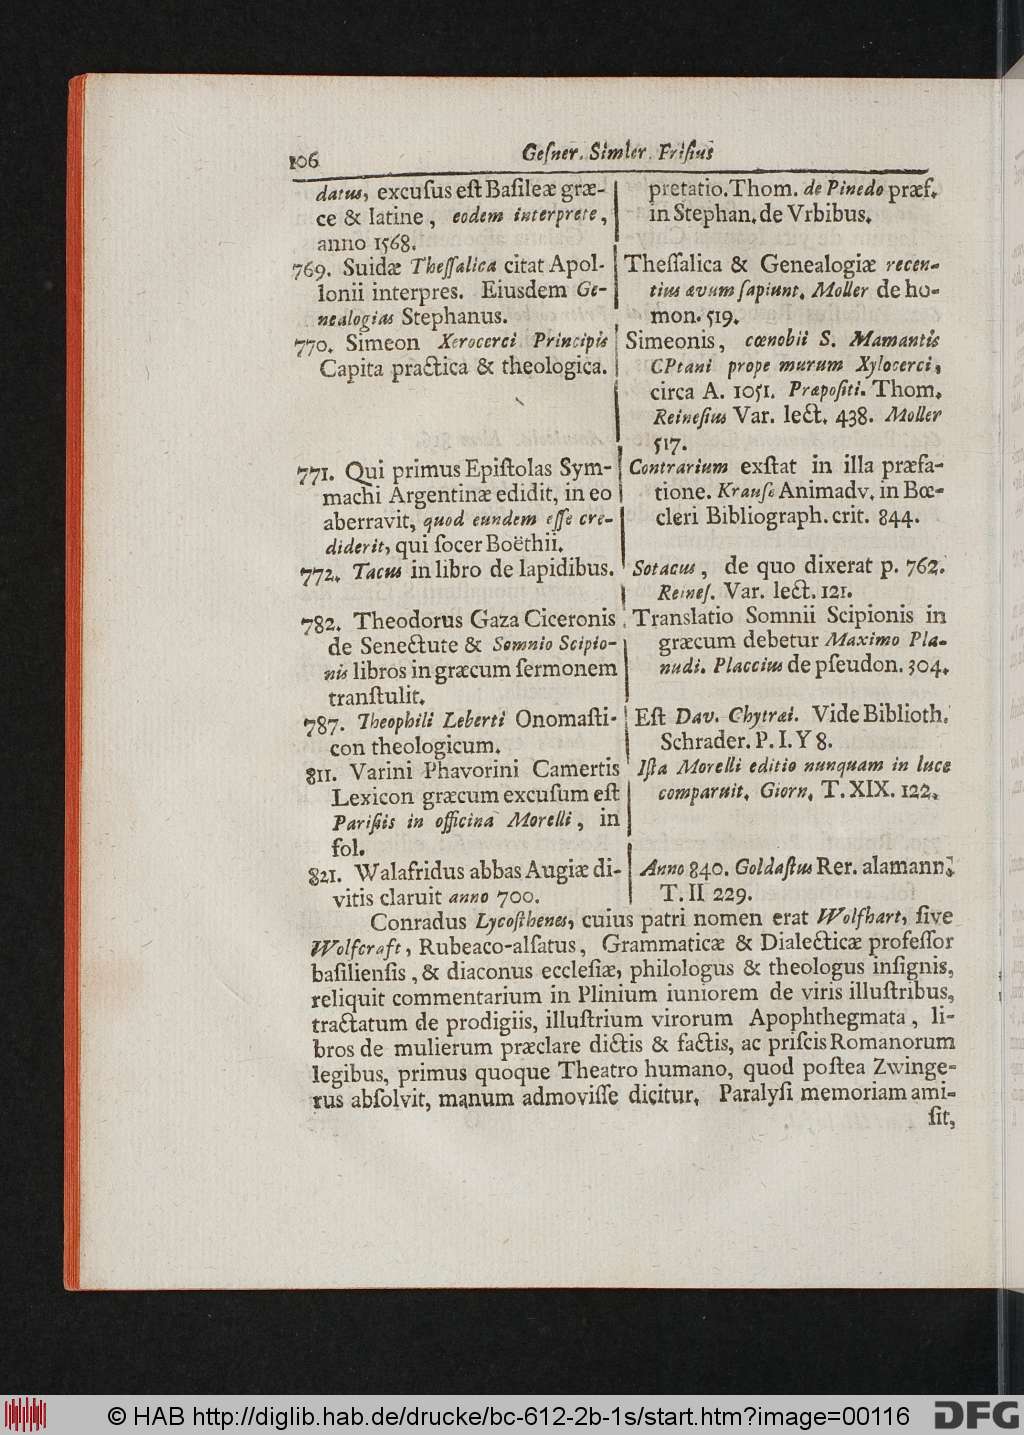 106
Geſner. Simler. Friſius
datus, excuſus eſt Baſileæ græ-
ce & latine, eodem interprete,
anno 1568.
pretatio. Thom. de Pinedo præf.
in Stephan. de Vrbibus.
769. Suidæ Theſſalica citat Apol-
lonii interpres. Eiusdem Ge-
nealogias Stephanus.
Theſſalica & Genealogiæ recen-
tius ævum ſapiunt. Moller de ho-
mon. 519.
770. Simeon Xerocerci Principis
Capita practica & theologica.
Simeonis, cœnobii S. Mamantis
CPtani prope murum Xylocerci,
circa A. 1051. Præpoſiti. Thom.
Reineſius Var. lect. 438. Moller
517.
771. Qui primus Epiſtolas Sym-
machi Argentinæ edidit, in eo
aberravit, quod eundem eſſe cre-
diderit, qui ſocer Boëthii.
Contrarium exſtat in illa præfa-
tione. Krauſe Animadv. in Bœ-
cleri Bibliograph. crit. 844.
772. Tacus in libro de lapidibus.
Sotacus, de quo dixerat p. 762.
Reineſ. Var. lect. 121.
782. Theodorus Gaza Ciceronis
de Senectute & Somnio Scipio-
nis libros in græcum ſermonem
tranſtulit.
Translatio Somnii Scipionis in
græcum debetur Maximo Pla-
nudi. Placcius de pſeudon. 304.
787. Theophili Leberti Onomaſti-
con theologicum.
Eſt Dav. Chytræi. Vide Biblioth.
Schrader. P. I. Y 8.
811. Varini Phavorini Camertis
Lexicon græcum excuſum eſt
Pariſiis in officina Morelli, in
fol.
Iſta Morelli editio nunquam in luce
comparuit. Giorn. T. XIX. 122.
821. Walafridus abbas Augiæ di-
vitis claruit anno 700.
Anno 840. Goldaſtus Rer. alamann.
T. II 229.
Conradus Lycoſthenes, cuius patri nomen erat Wolfhart, ſive
Wolfcraft, Rubeaco-alſatus, Grammaticæ & Dialecticæ profeſſor
baſilienſis, & diaconus eccleſiæ, philologus & theologus inſignis,
reliquit commentarium in Plinium iuniorem de viris illuſtribus,
tractatum de prodigiis, illuſtrium virorum Apophthegmata, li-
bros de mulierum præclare dictis & factis, ac priſcis Romanorum
legibus, primus quoque Theatro humano, quod poſtea Zwinge-
rus abſolvit, manum admoviſſe dicitur. Paralyſi memoriam ami-
ſit,
© HAB http://diglib.hab.de/drucke/bc-612-2b-1s/start.htm?image=00116
DFG